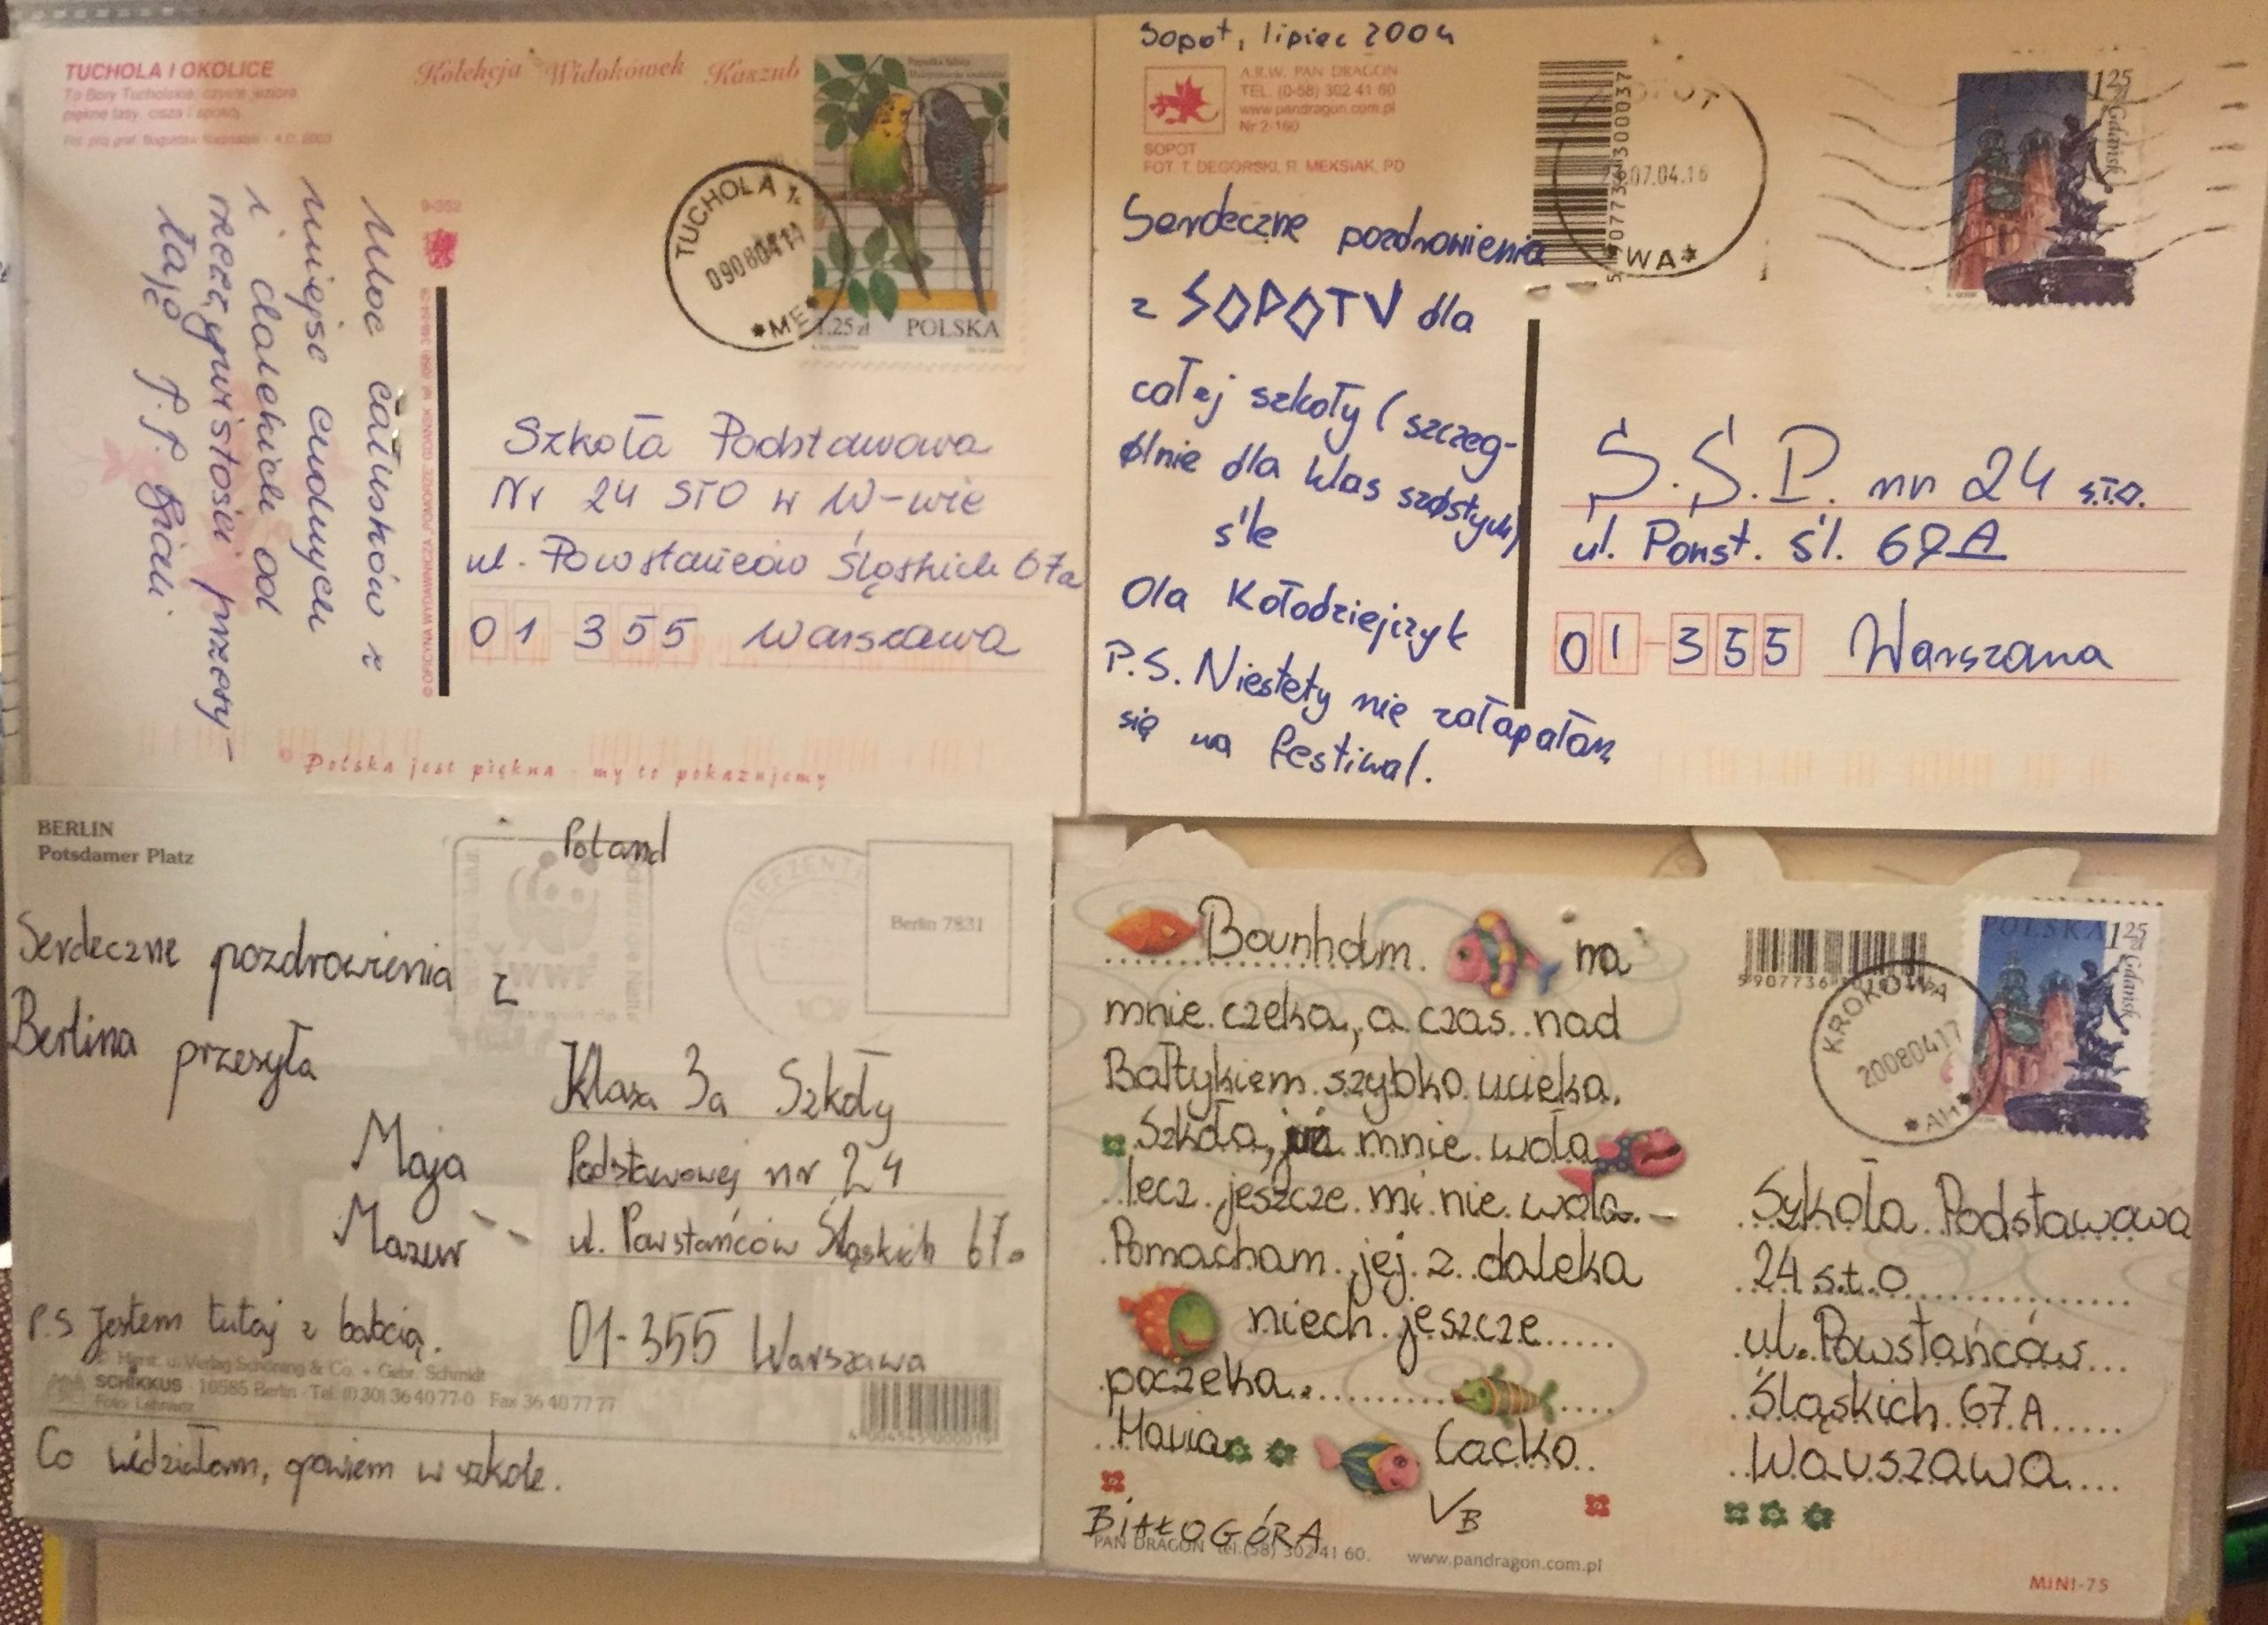 TUCHOLA I OKOLICE
To Bory Tucholskie, czyste jeziora
piękne lasy, cisza i spokój.
Kolekcja Widokówek Kaszub
Moc całusków z
miejsc cudnych
i dalekich od
rzeczywistości przesy-
łaję
9-352
TUCHOLA 1
09080414
*ME*
1.25 zł POLSKA
Szkoła Podstawowa
Nr 24 STO w W-wie
ul. Powstańców Śląskich 67a
01 355 Warszawa
© Polska jest piękna - my to pokazujemy
Sopot, lipiec 2004
A.R.W. PAN DRAGON
TEL. (0-58) 302 41 60
www.pandragon.com.pl
Nr 2-160
SOPOT
FOT. T. DEGÓRSKI, R. MEKSIAK, PD
Serdeczne pozdrowienia
z SOPOTV dla
całej szkoły (szczeg-
ólnie dla klas szóstych)
śle
Ola Kołodziejczyk
P.S. Niestety nie załapałam
się na festiwal.
5 907736 300037
07.04.16
*WA*
POLSKA 1 25 zł
Gdańsk
S.S.P. nr 24 s.t.o.
ul. Powst. Śl. 67A
01-355 Warszawa
BERLIN
Potsdamer Platz
Poland
WWF
BRIEFZENT
Berlin 7831
Serdeczne pozdrowienia z
Berlina przesyła
Maja
Mazur
P.S Jestem tutaj z babcią.
Co widziałam, opowiem w szkole.
Klasa 3a Szkoły
Podstawowej nr 24
ul. Powstańców Śląskich 67a
01-355 Warszawa
Verlag Schöning & Co. + Gebr. Schmidt
SCHIKKUS · 10585 Berlin · Tel. (0 30) 36 40 77-0 Fax 36 40 77 77
Foto:
Bornholm na
mnie czeka, a czas nad
Bałtykiem szybko ucieka.
Szkoła, już mnie woła
lecz jeszcze mi nie wola.
Pomacham jej z daleka
niech jeszcze
poczeka.
Maria Cacko
VB
BIAŁOGÓRA
PAN DRAGON tel.(58) 302 41 60. www.pandragon.com.pl
KROKOWA
20080417
*AH*
POLSKA 1 25 zł
Gdańsk
Szkoła Podstawowa
24 s.t.o
ul. Powstańców
Śląskich 67 A
Warszawa
MINI-75